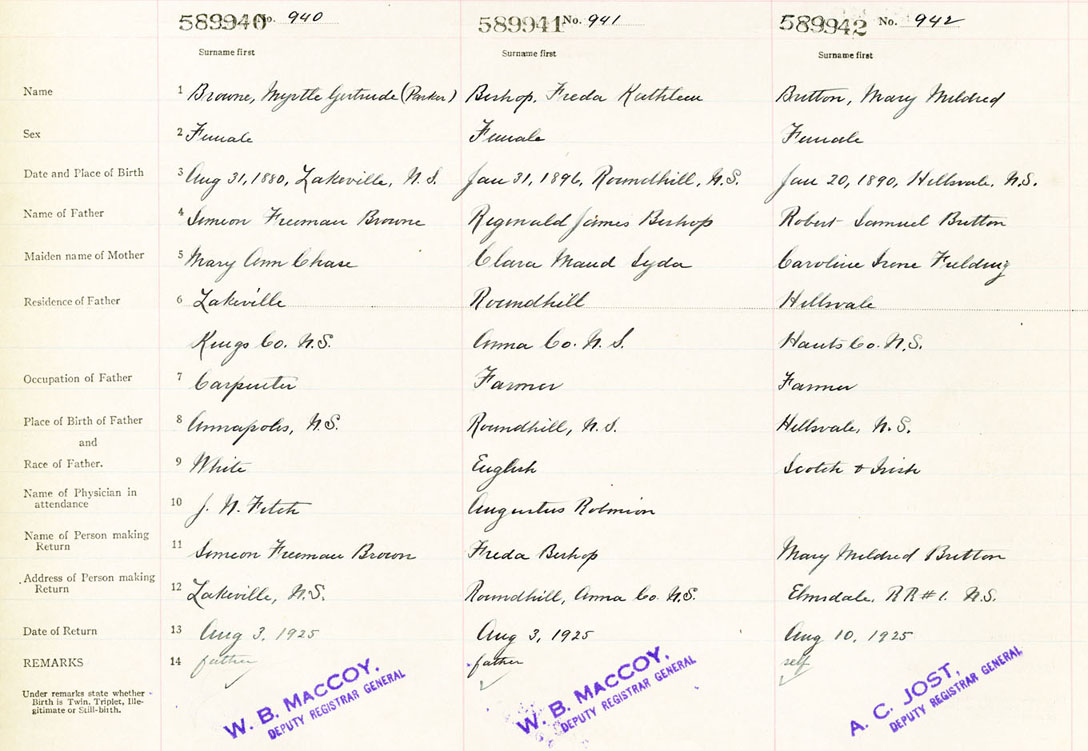 589940 No. 940 589941 No. 941 589942 No. 942
Surname first Surname first Surname first
Name 1 Browne, Myrtle Gertrude (Parker) Bishop, Freda Kathleen Britton, Mary Mildred
Sex 2 Female Female Female
Date and Place of Birth 3 Aug 31, 1880, Lakeville, N.S. Jan 31, 1896, Roundhill, N.S. Jan 20, 1890, Hillsvale, N.S.
Name of Father 4 Simeon Freeman Browne Reginald James Bishop Robert Samuel Britton
Maiden name of Mother 5 Mary Ann Chase Clara Maud Syda Caroline Irene Fielding
Residence of Father 6 Lakeville Roundhill Hillsvale
Kings Co. N.S. Anna Co. N.S. Hants Co. N.S.
Occupation of Father 7 Carpenter Farmer Farmer
Place of Birth of Father 8 Annapolis, N.S. Roundhill, N.S. Hillsvale, N.S.
and
Race of Father. 9 White English Scotch & Irish
Name of Physician in
attendance 10 J. N. Fitch Augustus Robinson
Name of Person making
Return 11 Simeon Freeman Brown Freda Bishop Mary Mildred Britton
Address of Person making
Return 12 Lakeville, N.S. Roundhill, Anna Co. N.S. Elmsdale, RR#1. N.S.
Date of Return 13 Aug 3, 1925 Aug 3, 1925 Aug 10, 1925
REMARKS 14 father father self
Under remarks state whether
Birth is Twin, Triplet, Ille-
gitimate or Still-birth.
W. B. MACCOY, W. B. MACCOY, A. C. JOST,
DEPUTY REGISTRAR GENERAL DEPUTY REGISTRAR GENERAL DEPUTY REGISTRAR GENERAL